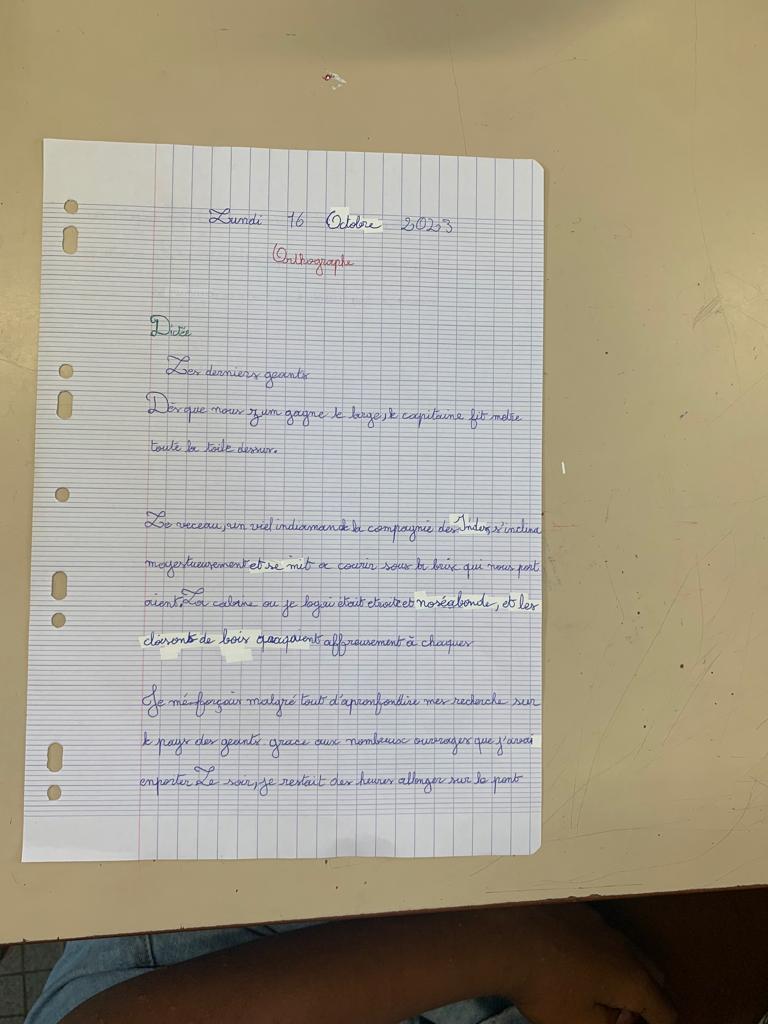 Lundi 16 Octobre 2023
Orthographe
Dictée
Les derniers geants
Dès que nous gagne le large, le capitaine fit metre
toute la toile dessur.
Le veceau, un viel indiaman de la compagnie des Indes, s'inclina
mayestueusement et se mit a courir sous la brise qui nous port
aient. La cabine ou je logai était etroite et noséabonde, et les
cloisont de bois quaquaient affreusement à chaques
Je mé forçais malgré tout d'apronfondire mes recherche sur
le pays des geants grace aux nombreux ouvrages que j'avai
enporter Le soir, je restait des heures allonger sur le pont